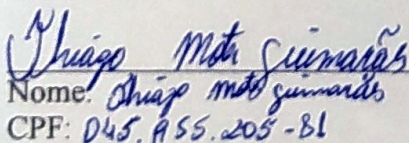 Thiago Mota Guimarães
Nome: Thiago mota guimarães
CPF: 045.955.205-81